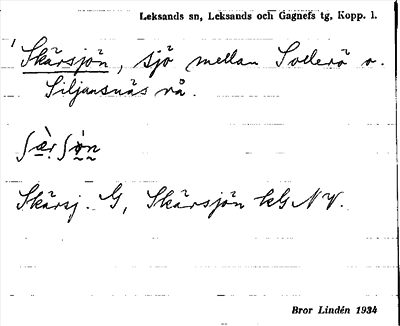 Leksands sn, Leksands och Gagnefs tg, Kopp. l.
1 Skärsjön, sjö mellan Sollerö o.
Siljansnäs rå.
ʃæ̀r ʃö̀n
Skärsj. G, Skärsjön kG NV.
Bror Lindén 1934